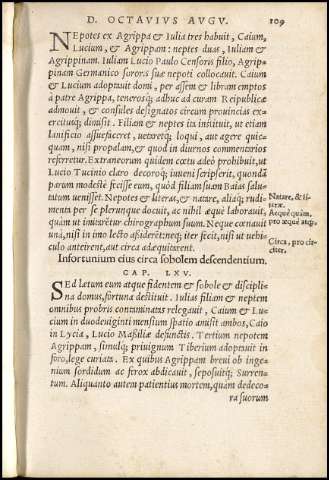 D. OCTAVIVS AVGV. 109
NEpotes ex Agrippa & Iulia tres habuit, Caium,
Lucium, & Agrippam: neptes duas, Iuliam &
Agrippinam. Iuliam Lucio Paulo Censoris filio, Agrip-
pinam Germanico sororis suæ nepoti collocauit. Caium &
Lucium adoptauit domi, per assem & libram emptos
à patre Agrippa, tenerosq; adhuc ad curam Reipublicæ
admouit, & consules designatos circum prouincias ex-
ercitusq; dimisit. Filiam & neptes ita instituit, ut etiam
lanificio assuefaceret, uetaretq; loqui, aut agere quic-
quam, nisi propalam, & quod in diurnos commentarios
referretur. Extraneorum quidem cœtu adeò prohibuit, ut
Lucio Tucinio claro decoroq; iuueni scripserit, quondã
parum modestè fecisse eum, quòd filiam suam Baias salu-
tatum uenisset. Nepotes & literas, & natare, aliaq; rudi-
menta per se plerunque docuit, ac nihil æquè laborauit,
quàm ut imitarentur chirographum suum. Neque cœnauit
unà, nisi in imo lecto assiderẽt: neq; iter fecit, nisi ut uehi-
culo anteirent, aut circa adequitarent.
Natare, & li-
teræ.
Aequè quàm,
pro æquè atq;.
Circa, pro cir-
citer.
Infortunium eius circa sobolem descendentium.
CAP. LXV.
SEd lætum eum atque fidentem & sobole & discipli-
na domus, fortuna destituit. Iulias filiam & neptem
omnibus probris contaminatas relegauit, Caium & Lu-
cium in duodeuiginti mensium spatio amisit ambos, Caio
in Lycia, Lucio Maßiliæ defunctis. Tertium nepotem
Agrippam, simulq; priuignum Tiberium adoptauit in
foro, lege curiata. Ex quibus Agrippam breui ob inge-
nium sordidum ac ferox abdicauit, seposuitq; Surren-
tum. Aliquanto autem patientius mortem, quàm dedeco-
ra suorum